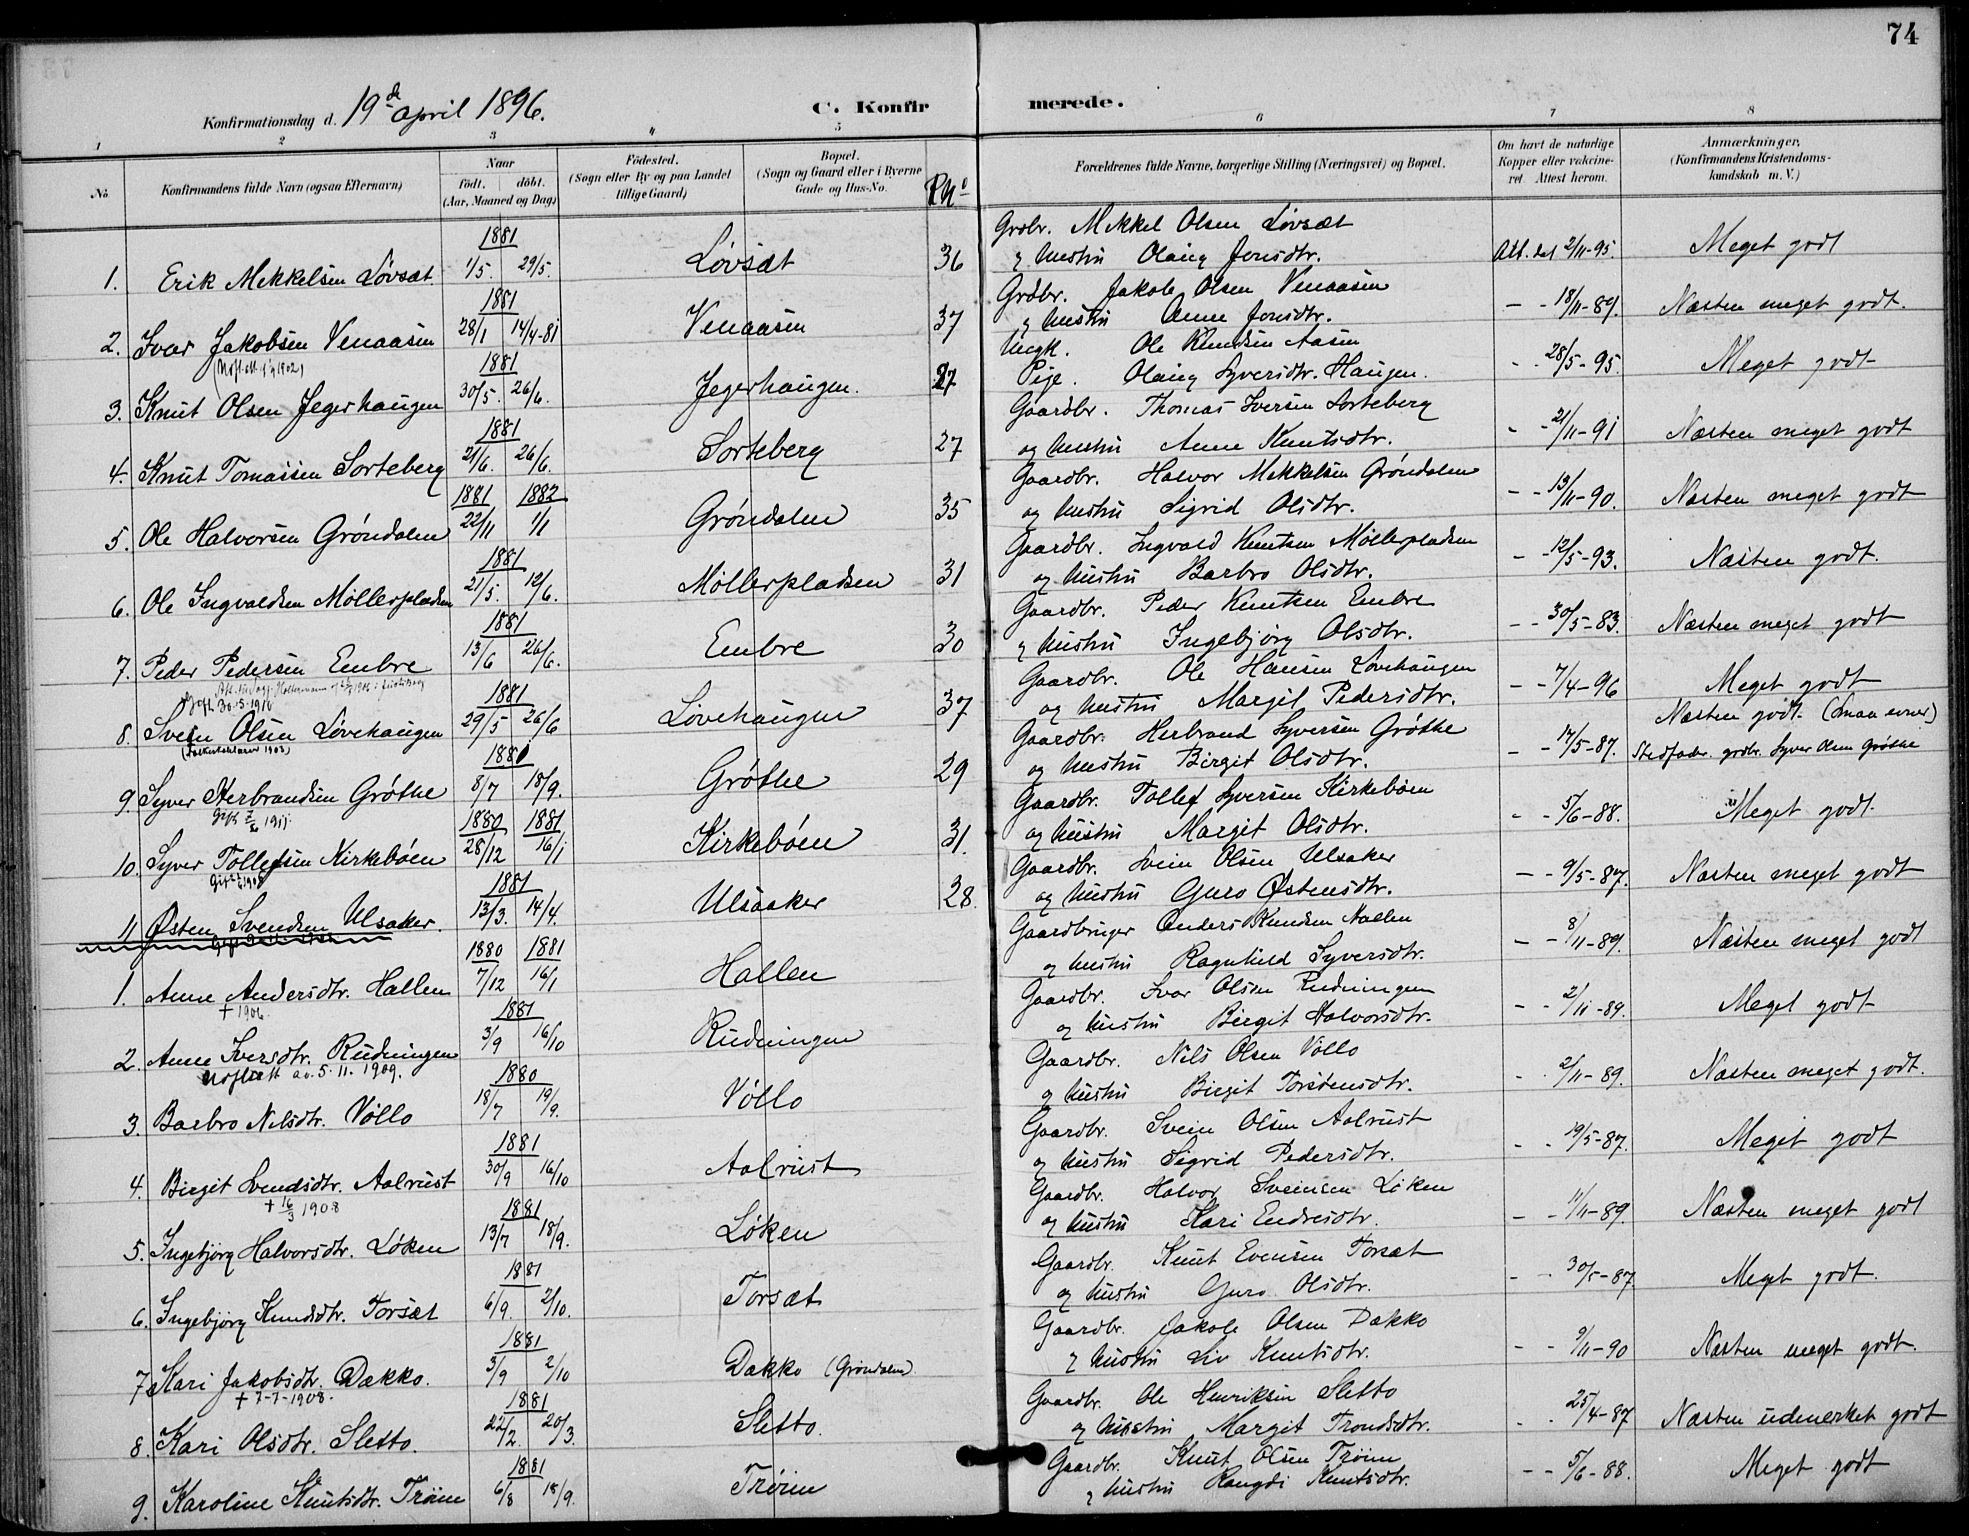 74
Konfirmationsdag d. 19de April 1896.
C. Konfirmerede.
1 2 3 4 5 6 7 8
No.
Konfirmandens fulde Navn (ogsaa Efternavn)
Naar
födt. döbt.
(Aar, Maaned og Dag)
Födested.
(Sogn eller By og paa Landet
tillige Gaard)
Bopæl.
(Sogn og Gaard eller i Byerne
Gade og Hus-No.
Forældrenes fulde Navne, borgerlige Stilling (Næringsvei) og Bopæl.
Om havt de naturlige
Kopper eller vakcine-
ret. Attest herom.
Anmærkninger.
(Konfirmandens Kristendoms-
kundskab m. V.)
1881
Grdbr. Mekkel Olsen Lövsæt
1. Erik Mekkelsen Lövsæt 1/5. 29/5. Lövsæt 36 og hustru Olaug Jonsdtr. Att. dat 2/11-95. Meget godt
1881
Grdbr. Jakob Olsen Venaasen
2. Ivar Jakobsen Venaasen 28/1 14/4-81 Venaasen 37 og hustru Anne Jonsdtr. - - 18/11-89. Næsten meget godt.
1881
Ungk. Ole Knudsen Aasen
3. Knut Olsen Jegerhaugen 30/5. 26/6. Jegerhaugen. 27 Pige. Olaug Syversdtr. Haugen. - - 28/5-95. Meget godt
1881
Gaardbr. Thomas Iversen Sorteberg
4. Knut Tomassen Sorteberg 21/6. 26/6. Sorteberg 27 og hustru Anne Knutsdtr. - - 21/11-91 Næsten meget godt
1881 1882
Gaardbr. Halvor Mekkelsen Gröndalen
5. Ole Halvorsen Gröndalen 22/11 1/1 Gröndalen 35 og hustru Sigrid Olsdtr. - - 13/11-90. Næsten meget godt
1881
Gaardbr. Ingvald Knutsen Möllerpladsen
6. Ole Ingvaldsen Möllerpladsen 21/5. 12/6. Möllerpladsen 31 og hustru Barbro Olsdtr. - - 12/5-93. Næsten godt.
1881
Gaardbr. Peder Knutsen Embre
7. Peder Pedersen Embre 13/6 26/6. Embre 30 og hustru Ingebjörg Olsdtr. - - 30/5-83. Næsten meget godt
Gift 30.5.1910
1881
Gaardbr. Ole Hansen Lövehaugen
8. Svein Olsen Lövehaugen 29/5 26/6 Lövehaugen 37 og hustru Margit Pedersdtr. - - 7/4-96 Meget godt
1881
Gaardbr. Herbrand Syversen Gröthe
Næsten godt. (smaa evner)
9. Syver Herbrandsen Gröthe 8/7 18/9. Gröthe 29 og hustru Birgit Olsdtr. - - 17/5-87. Stedfader. grdbr. Syver Olsen Gröthe
1880 1881
Gaardbr. Tollef Syversen Kirkeböen
10. Syver Tollefsen Kirkeböen 28/12 16/1 Kirkeböen 31. og hustru Margit Olsdtr. - - 5/6-88. Meget godt
1881
Gaardbr. Svein Olsen Ulsaker
11 Østen Svendsen Ulsaker. 13/3. 14/4. Ulsaaker 28. og hustru Guro Østensdtr. - - 9/5-87. Næsten meget godt
1880 1881
Gaardbruger Anders Knudsen Hallen
1. Anne Andersdtr. Hallen 7/12 16/1 Hallen og hustru Ragnhild Syversdtr. - - 8/11-89. Næsten meget godt
† 1906
1881
Gaardbr. Ivar Olsen Rudningen
2. Anne Iversdtr. Rudningen 3/9 16/10 Rudningen og hustru Birgit Halvorsdtr. - - 2/11-89. Meget godt
av 5.11.1909.
1880
Gaardbr. Nils Olsen Völlo
3. Barbro Nilsdtr. Völlo 18/7 19/9. Völlo og hustru Birgit Torstensdtr. - - 2/11-89. Næsten meget godt.
1881
Gaardbr. Svein Olsen Aalrust
4. Birgit Svendsdtr. Aalrust 30/9 16/10 Aalrust og hustru Sigrid Pedersdtr. - - 19/5-87. Meget godt
† 16/3 1908
1881
Gaardbr. Halvor Sveinsen Löken
5. Ingebjörg Halvorsdtr. Löken 13/7 18/9. Löken og hustru Kari Endresdtr. - - 11/11-89. Næsten meget godt
1881
Gaardbr. Knut Evensen Torsæt
6. Ingebjörg Knudsdtr. Torsæt 6/9. 2/10. Torsæt og hustru Guro Olsdtr. - - 30/5-87 Meget godt.
1881
Gaardbr. Jakob Olsen Dækko
7 Kari Jakobsdtr. Dækko. 3/9 2/10 Dækko (Gröndalen) og hustru Liv Knutsdtr. - - 9/11-90 Næsten meget godt.
† 7-7-1908.
1881
Gaardbr. Ole Henriksen Sletto
8. Kari Olsdtr. Sletto. 22/2. 20/3. Sletto. og hustru Margit Trondsdtr. - - 25/4-87 Næsten udmerket godt
1881
Gaardbr. Knut Olsen Tröim
9. Karoline Knutsdtr. Tröim 6/8 18/9. Tröim og hustru Rangdi Knutsdtr. - - 5/6-88. Meget godt